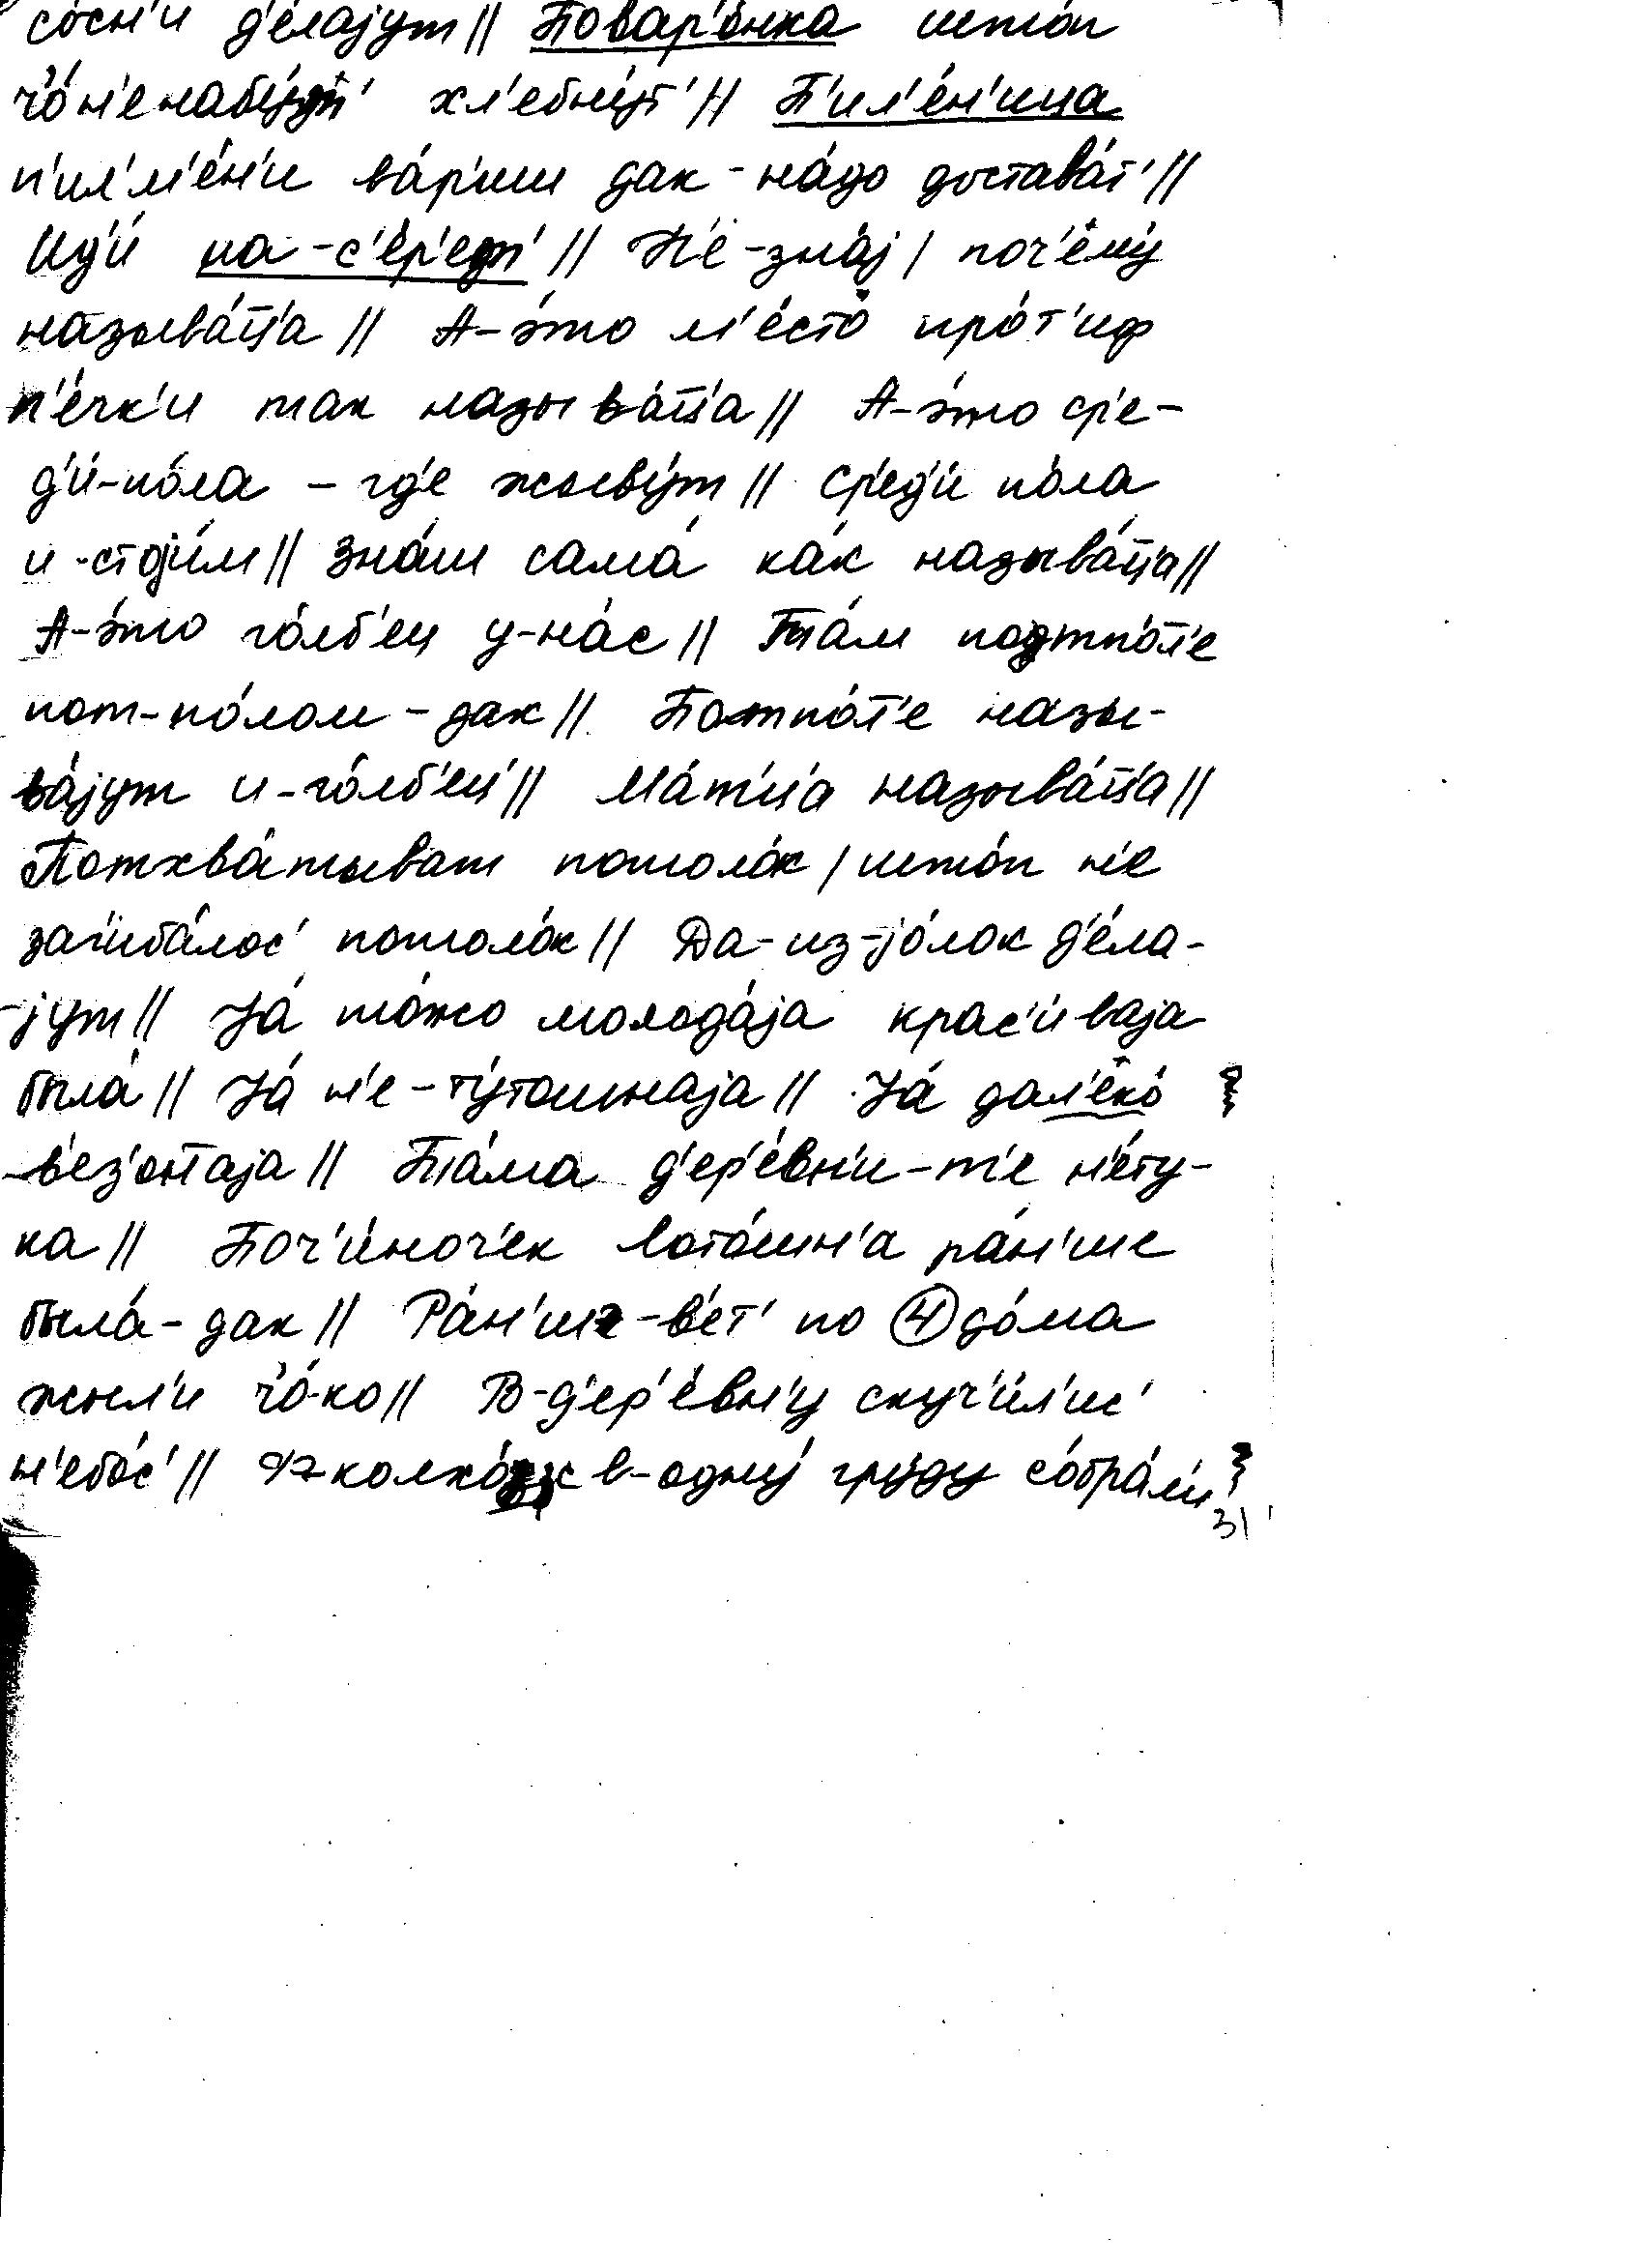 со́сн'и д'е́лаjут // Повар'о́нка штоп
ч'о́н'енабу́т' хл'ебну́т' // П'ил'е́н'ица
п'ил'м'е́н'и ва́р'иш дак - на́до достава́т' //
Ид'и́ на-с'е́р'ет' // Н'е-зна́j / поч'ему́
называ́ц̄а // А-э́то м'е́сто про́т'иф
п'е́чк'и так называ́ц̄а // А-э́то ср'е-
д'и́-по́ла - гд'е жыву́т // Ср'ед'и́ по́ла
и-стоjи́м // Зна́ш сама́ ка́к называ́ц̄а //
А-э́то го́лб'ец у-на́с // Та́м потпо́л'е
пот-по́лом - дак // Потпо́л'е назы-
ва́jут и-го́лб'ец' // Ма́т'ица называ́ц̄а //
Потхва́тыват потоло́к / што́п н'е
заг'иба́лос' потоло́к // Да-из-jо́лок д'е́ла-
-jут // Jа́ то́жо молода́jа крас'и́ваjа
была́ // Jа́ н'е-ту́тошнаjа // Jа́ дал'еко́
-в'ез'о́наjа // Та́ма д'ер'е́вн'и-т'е н'е́ту-
ка // Поч'и́ноч'ек Вото́шн'а ра́н'ше
была́-дак // Ра́н'ше-в'ет' по 4 до́ма
жыл'и ч'о́-ко // В-д'ер'е́вн'у скуч'и́л'ис'
н'ебо́с' // колхо́с в-одну́ гру́ду собра́ли
31